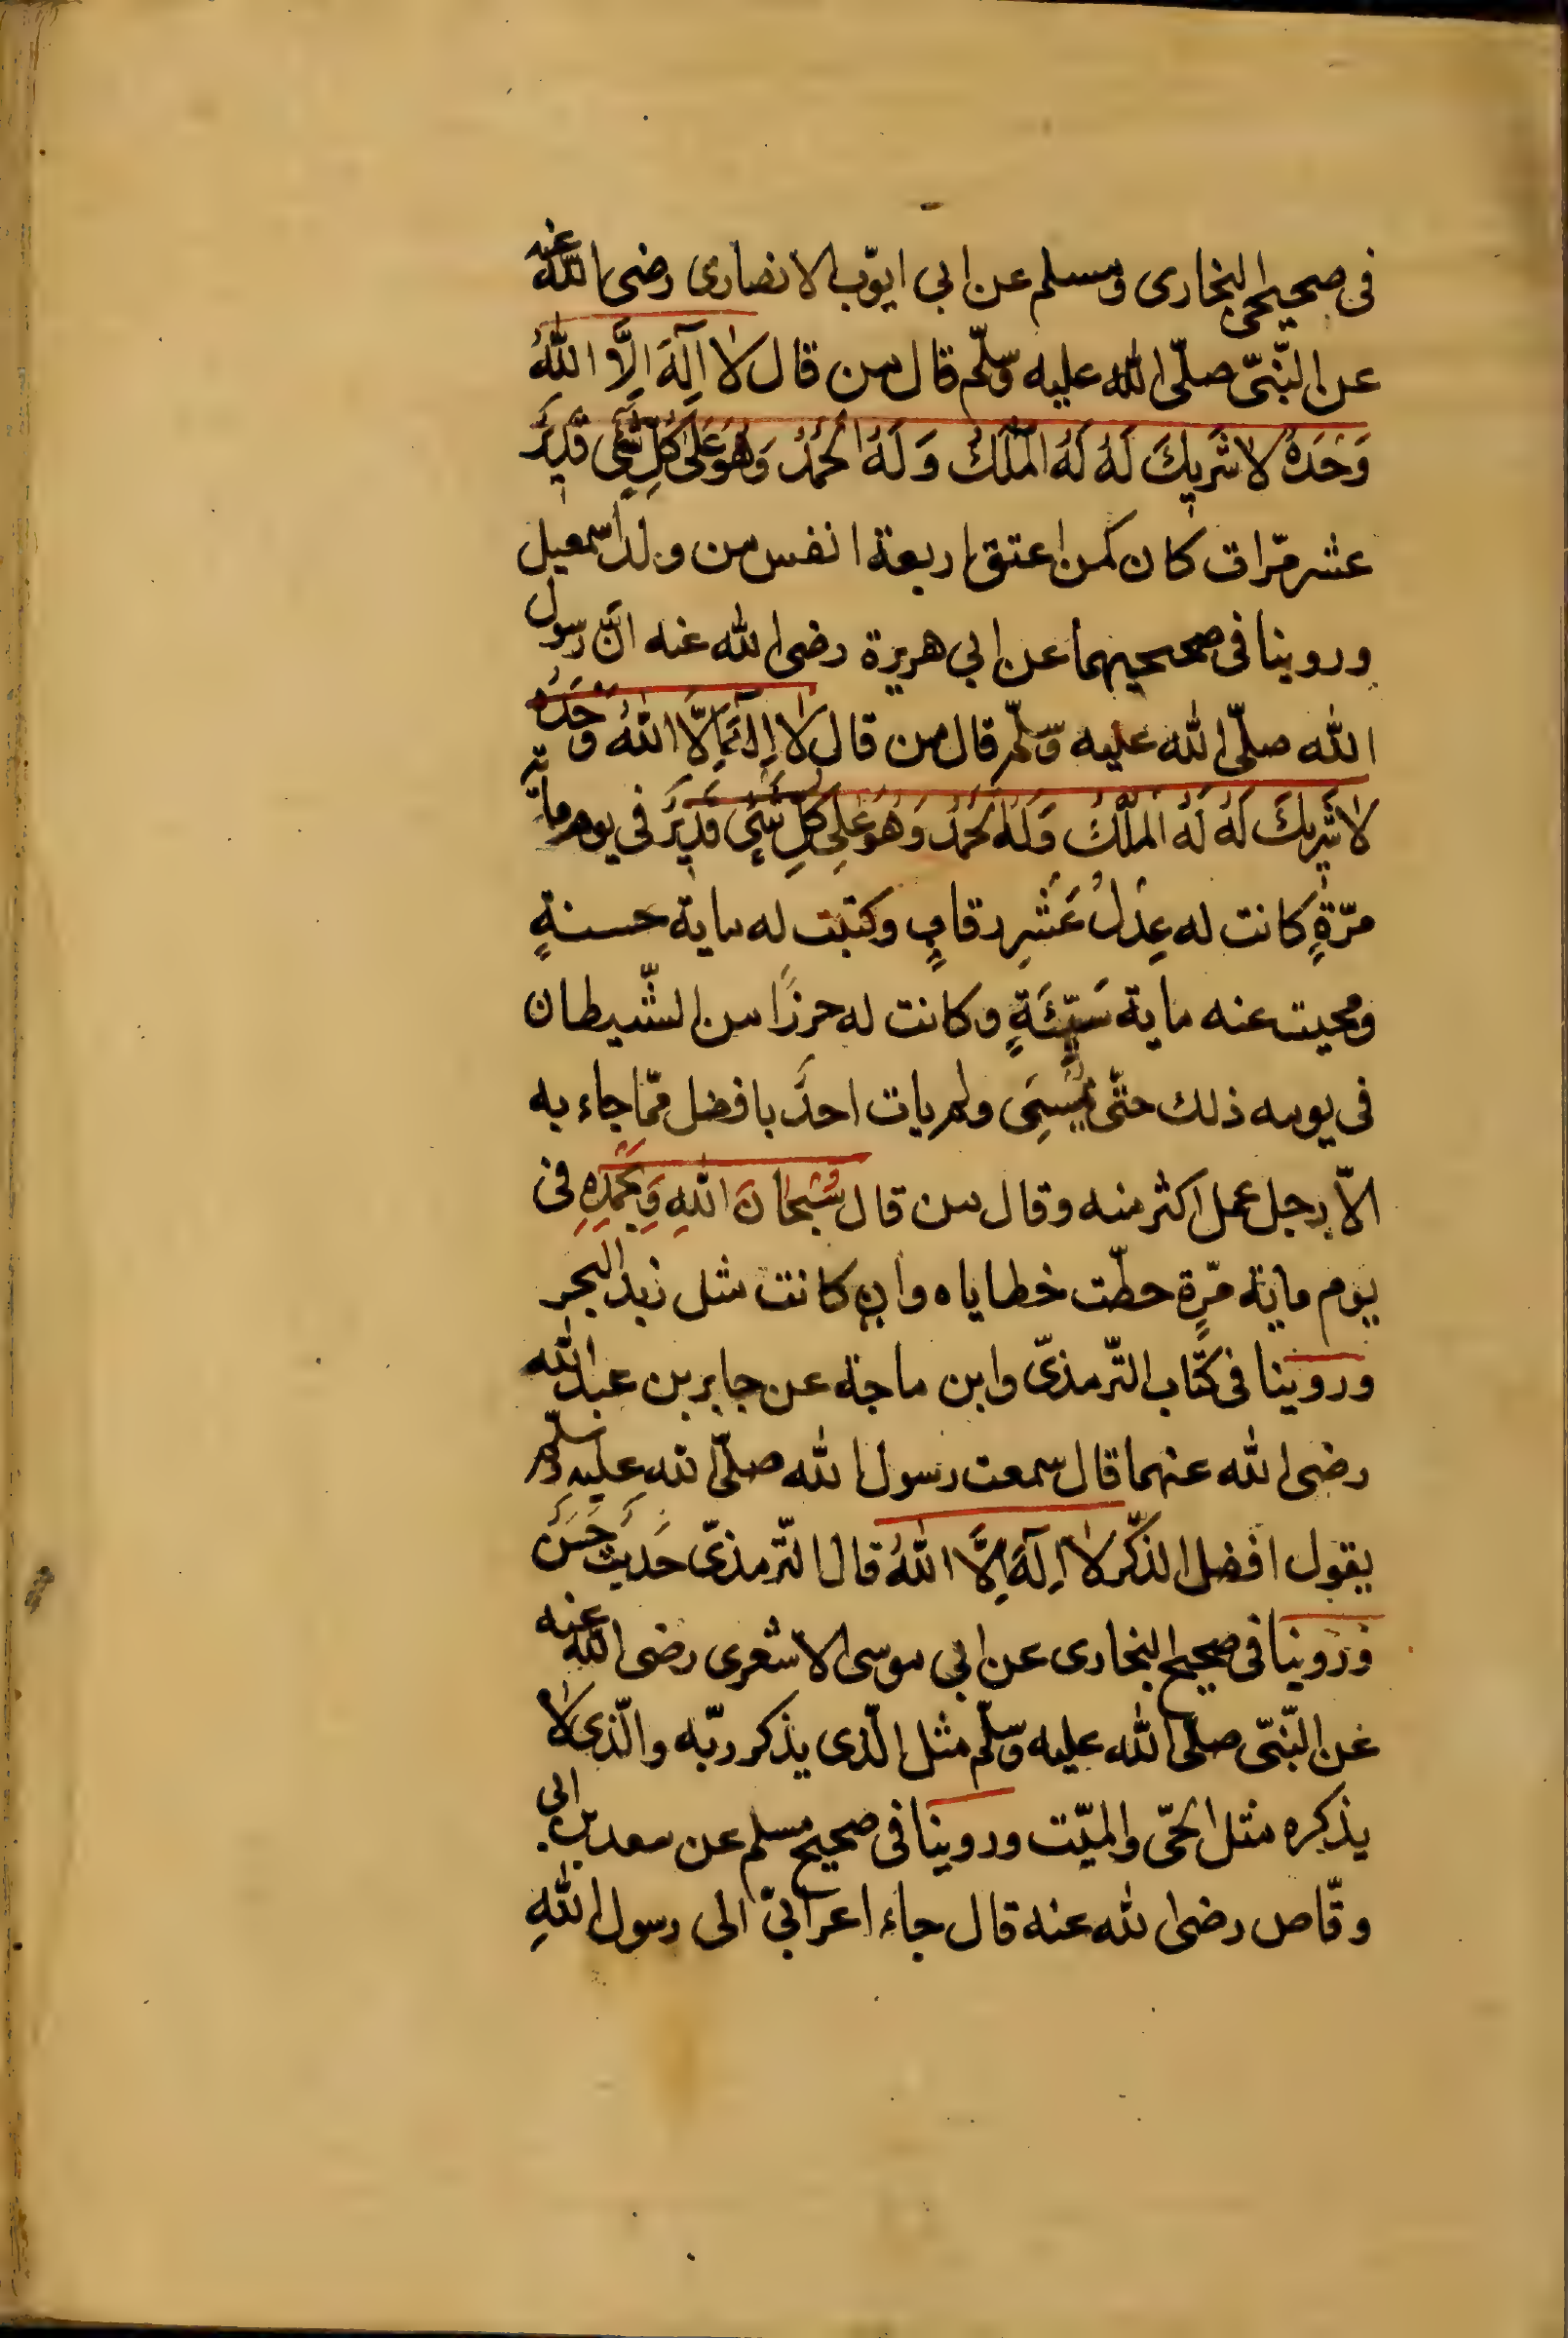 فى صحيحى البخارى ومسلم عن ابى ايّوب الانصارى رضى الله عنه
عن النّبىّ صلّى الله عليه وسلّم قال من قال لا اِلٰهَ اِلَّا اللهُ
وَحْدَهُ لا شَرِيكَ لَهُ لَهُ الْمُلْكُ وَلَهُ الْحَمْدُ وَهُوَ عَلَى كُلِّ شَىْءٍ قَدِيرٌ
عشر مرّات كان كمن اعتق اربعة انفس من ولد اسمعيل
وروينا فى صحيحيهما عن ابى هريرة رضى الله عنه انّ رسول
الله صلّى الله عليه وسلّم قال من قال لا اِلٰهَ اِلَّا اللهُ وَحْدَهُ
لا شَرِيكَ لَهُ لَهُ الْمُلْكُ وَلَهُ الْحَمْدُ وَهُوَ عَلَى كُلِّ شَىْءٍ قَدِيرٌ فى يوم ماية
مرّةٍ كانت له عِدْلُ عَشْرِ رقابٍ وكتبت له ماية حسنةٍ
ومحيت عنه ماية سَيِّئَةٍ وكانت له حرزًا من الشّيطان
فى يومه ذلك حتّى يُمْسِىَ ولم يات احدٌ بافضل ممّا جاء به
الّا رجل عمل اكثر منه وقال من قال سُبْحَانَ اللهِ وَبِحَمْدِهِ فى
يوم ماية مرّةٍ حطّت خطاياه وان كانت مثل زبد البحر
وروينا فى كتاب التّرمذىّ وابن ماجة عن جابر بن عبد الله
رضى الله عنهما قال سمعت رسول الله صلّى اللهِ عليهِ وسلّم
يقول افضل الذّكر لا اِلٰهَ اِلَّا اللهُ قال التّرمذىّ حَدِيث حَسَن
وروينا فى صحيح البخارى عن ابى موسى الاشعرى رضى الله عنه
عن النّبىّ صلّى الله عليه وسلّم مثل الّذى يذكر ربّه والّذى لا
يذكره مثل الحىّ والميّت وروينا فى صحيح مسلم عن سعد بن ابى
وقّاص رضى الله عنه قال جاء اعرابىّ الى رسول اللهِ